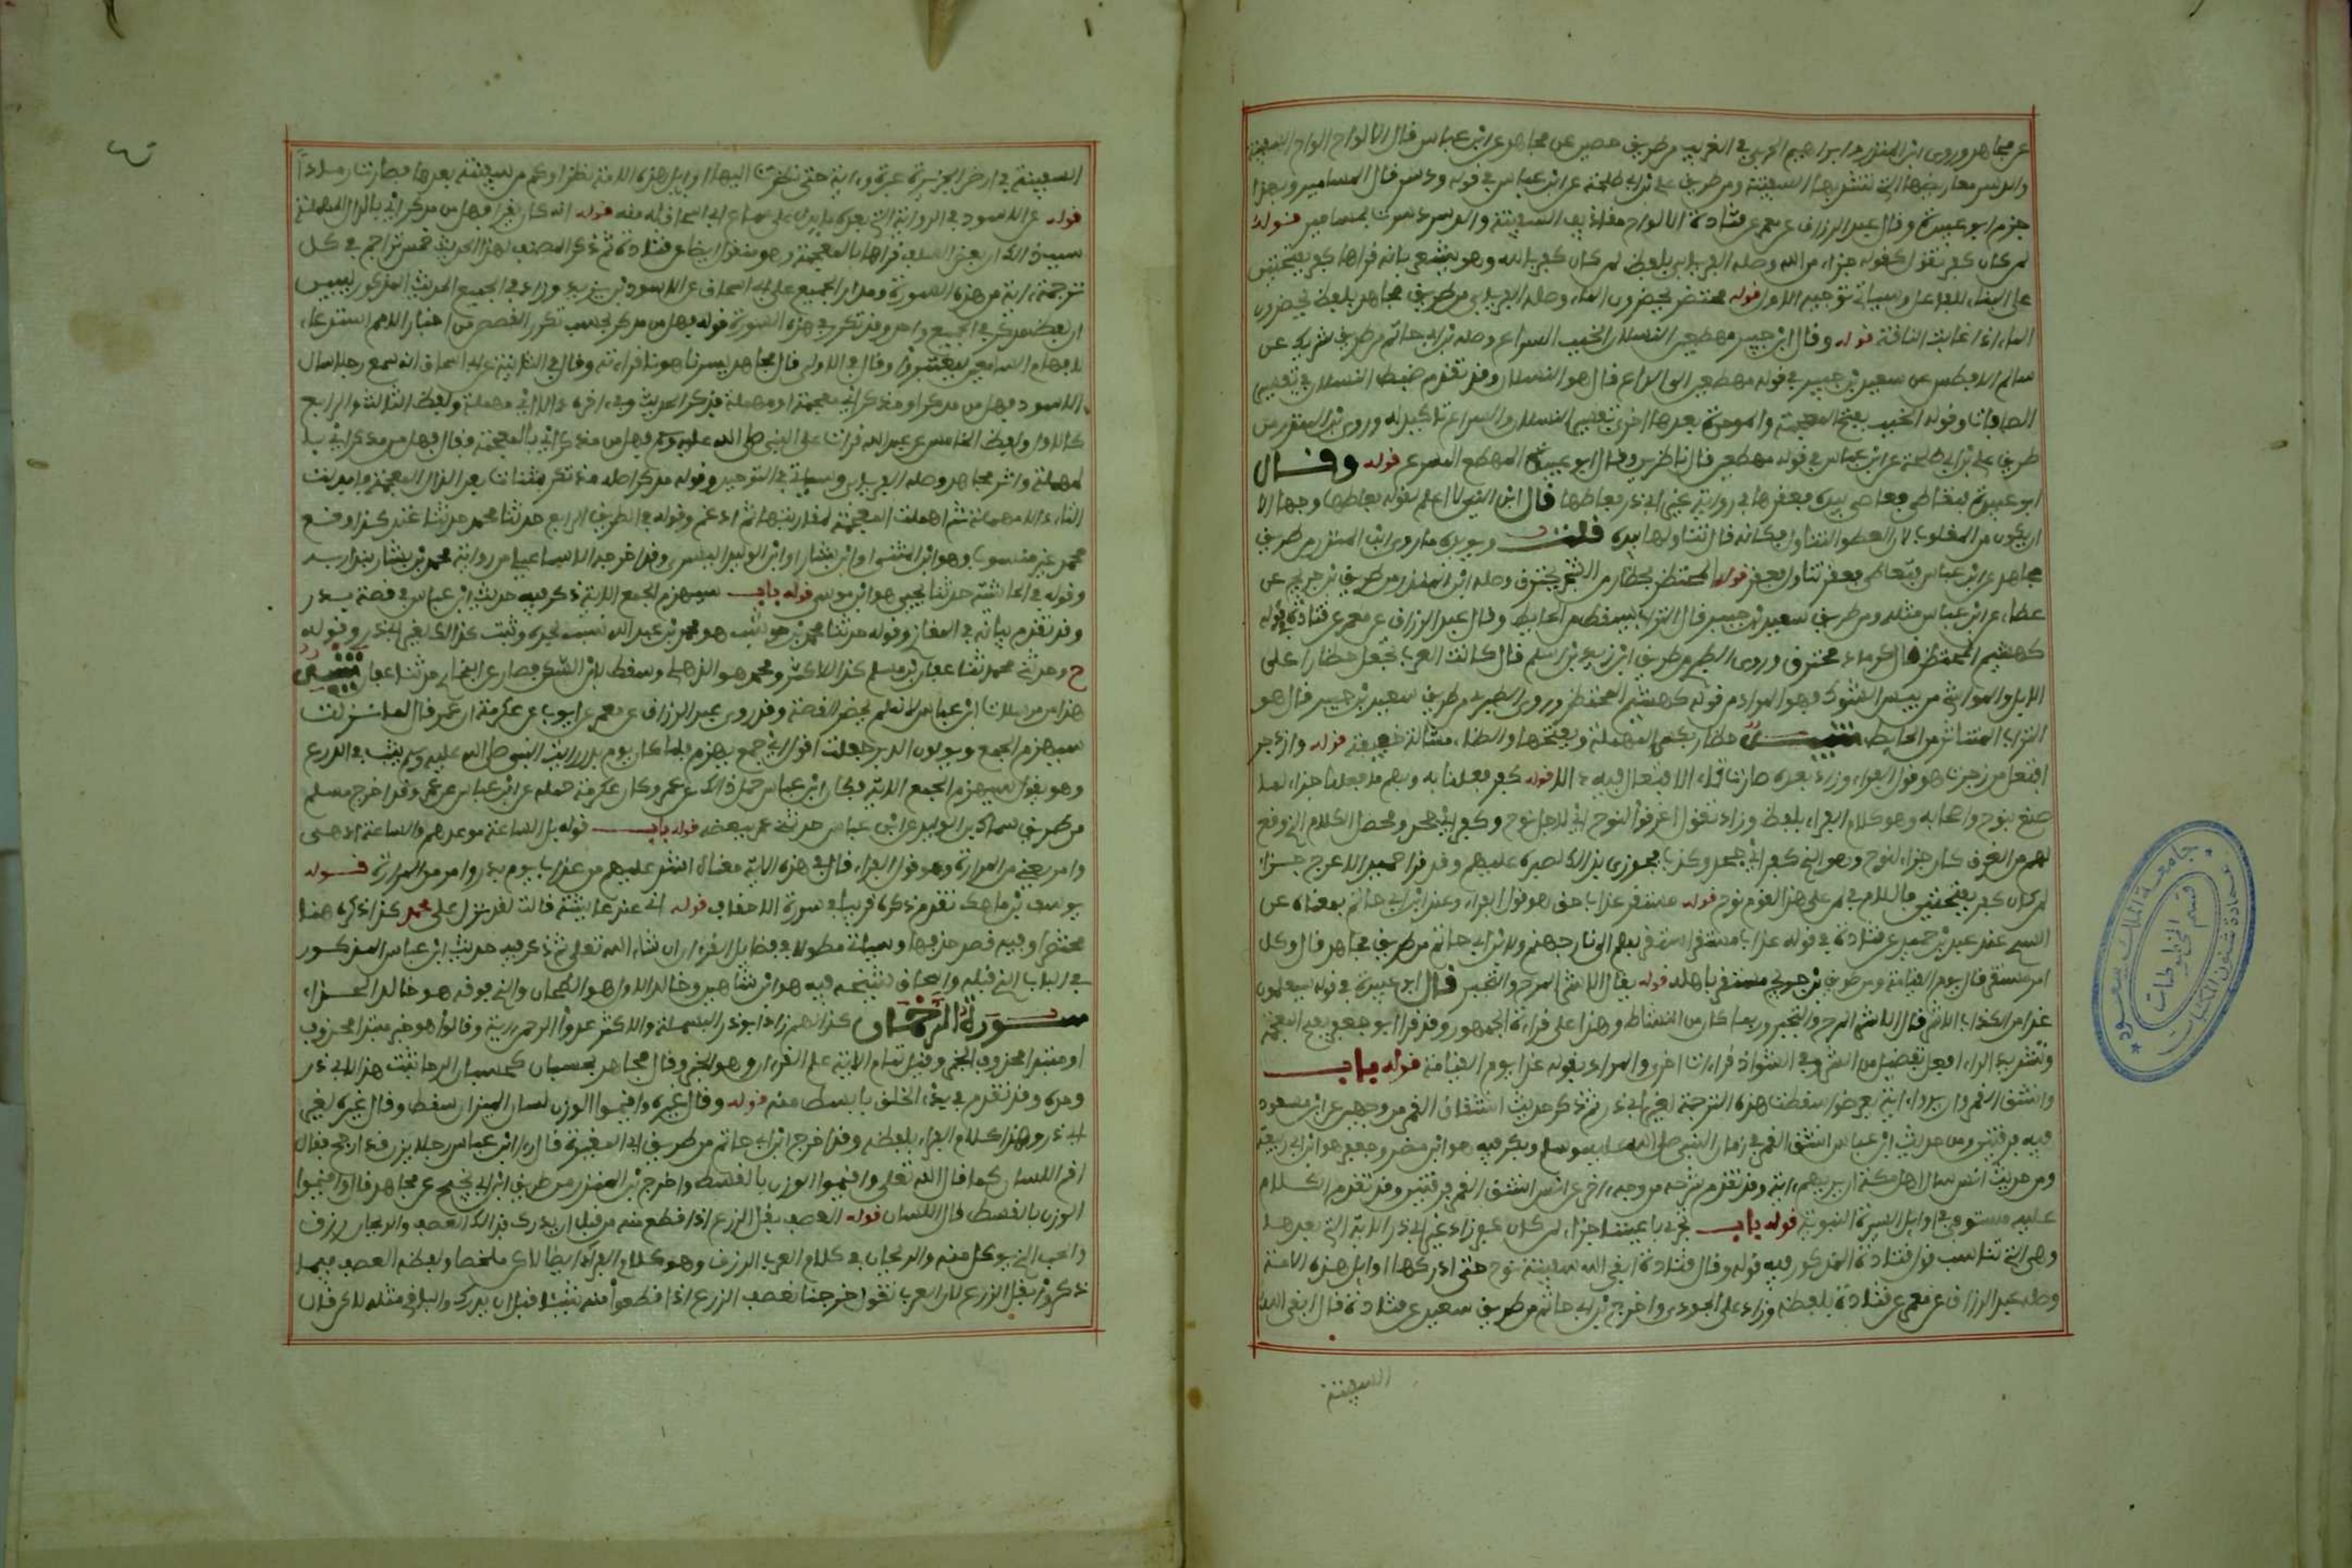 عن مجاهد وروى ابن المنذر وابراهيم الحربي في الغريب من طريق حصين عن مجاهد عن ابن عباس قال الالواح الواح السفينة
والدسر معاريضها التي تشد بها السفينة ومن طريق علي بن ابي طلحة عن ابن عباس في قوله ودسر قال المسامير وبهذا
جزم ابو عبيدة وقال عبد الرزاق عن معمر عن قتادة الالواح مقاذيف السفينة والدسر دسرت بمسامير قوله
لمن كان كفر يقول كفر له جزاء من الله وصله الفريابي بلفظ لمن كان كفر بالله وهو يشعر بانه قراها كفر بفتحتين
على البناء للفاعل وسياتي توجيه الاول قوله محتضر يحضرون الماء وصله الفريابي من طريق مجاهد بلفظ يحضرون
الماء اذا غابت الناقة قوله وقال ابن جبير مهطعين النسلان الخبب السراع وصله ابن ابي حاتم من طريق شريك عن
سالم الافطس عن سعيد بن جبير في قوله مهطعين الى الداع قال هو النسلان وقد تقدم ضبط النسلان في تفسير
الصافات وقوله الخبب بفتح المعجمة والموحدة بعدها اخرى تفسير النسلان والسراع تاكيد له وروى ابن المنذر من
طريق علي بن ابي طلحة عن ابن عباس في قوله مهطعين قال ناظرين وقال ابو عبيدة المهطع المسرع قوله وقال
ابو عبيدة فتعاطى فعاطى بيده فعقرها في رواية غير ابي ذر فعاطها قال ابن التين لا اعلم لقوله فعاطها وجها الا
ان يكون من المقلوب لان العطو التناول فكانه قال تناولها بيده قلت ويويده ما روى ابن المنذر من طريق
مجاهد عن ابن عباس فتعاطى فعقر تناول فعقر قوله المحتظر كحظار من الشجر محترق وصله ابن المنذر من طريق ابن جريج عن
عطاء عن ابن عباس مثله ومن طريق سعيد بن جبير قال التراب يسقط من الحايط وقال عبد الرزاق عن معمر عن قتادة قوله
كهشيم المحتظر قال كرماد محترق وروى الطبري من طريق ابن زيد بن اسلم قال كانت العرب تجعل حظارا على
الابل والمواشي من يبس الشوك فهو المراد من قوله كهشيم المحتظر وروى الطبري من طريق سعيد بن جبير قال هو
التراب المتناثر من الحايط تنبيه حظار بكسر المهملة وبفتحها والظاء مشالة خفيفة قوله وازدجر
افتعل من زجرت هو قول الفراء وزاد بعده صارت تاء الافتعال فيه دالا قوله كفر فعلنا به وبهم ما فعلنا جزاء لما
صنع بنوح واصحابه وهو كلام الفراء بلفظه وزاد يقول اغرقوا لنوح اي لاجل نوح وكفر اي جحد ومحصل الكلام الذي وقع
لهم من الغرق كان جزاء لنوح وهو الذي كفر اي جحد وكذب فجوزي بذلك لصبره عليهم وقد قرا حميد الاعرج جزاء
لمن كان كفر بفتحتين فاللام في لمن على هذا القوم نوح قوله مستقر عذاب حق هو قول الفراء وعند ابن ابي حاتم بمعناه عن
السدي عند عبد بن حميد عن قتادة في قوله عذاب مستقر استقر بهم الى نار جهنم ولابن ابي حاتم من طريق مجاهد قال وكل
امر مستقر قال يوم القيامة ومن طريق ابن جريج مستقر باهله قوله يقال الاشر المرح والتجبر قال ابو عبيدة في قوله سيعلمون
غدا من الكذاب الاشر قال الاشر المرح والتجبر وربما كان من النشاط وهذا على قراءة الجمهور وقد قرا ابو جعفر بفتح المعجمة
وتشديد الراء افعل تفضيل من الشر وفي الشواذ قراءات اخرى والمراد بقوله غدا يوم القيامة قوله باب
وانشق القمر وان يروا ءاية يعرضوا سقطت هذه الترجمة لغير ابي ذر ثم ذكر حديث انشقاق القمر من وجهين عن ابن مسعود
فيه فرقتين ومن حديث ابن عباس انشق القمر في زمان النبي صلى الله عليه وسلم وبكر فيه هو ابن مضر وجعفر هو ابن ربيعة
ومن حديث انس سال اهل مكة ان يريهم ءاية وقد تقدم شرحه من وجه ءاخر عن انس انشق القمر فرقتين وقد تقدم الكلام
عليه مستوفى في اوايل السيرة النبوية قوله باب تجري باعيننا جزاء لمن كان كفر زاد غير ابي ذر الاية التي بعدها
وهي التي تناسب قول قتادة المذكور فيه قوله وقال قتادة ابقى الله سفينة نوح حتى ادركها اوايل هذه الامة
وصله عبد الرزاق عن معمر عن قتادة بلفظه وزاد على الجودي واخرج ابن ابي حاتم من طريق سعيد عن قتادة قال ابقى الله
السفينة
السفينة في ارض الجزيرة عبرة وءاية حتى نظرت اليها اوايل هذه الامة نظرا وكم من سفينة بعدها فصارت رمادا
قوله عن الاسود في الرواية التي بعده ما يدل على سماع ابي اسحاق له منه قوله انه كان يقرا فهل من مدكر اي بالدال المهملة
سبب ذلك ان بعض السلف قراها بالمعجمة وهو منقول ايضا عن قتادة ثم ذكر المصنف لهذا الحديث خمس تراجم في كل
ترجمة ءاية من هذه السورة ومدار الجميع على ابي اسحاق عن الاسود بن يزيد وزاد في الجميع الحديث المذكور ليبين
ان لفظ مدكر في الجميع واحد وقد تكرر في هذه السورة قوله فهل من مدكر بحسب تكرر القصص من اخبار الامم استدعاء
لافهام السامعين ليعتبروا وقال في الاولى قال مجاهد يسرنا هونا قراءته وقال في الثانية عن ابي اسحاق انه سمع رجلا سال
الاسود فهل من مدكر او مذكر اي معجمة او مهملة فذكر الحديث وفي ءاخره دالا اي مهملة ولفظ الثالث والرابع
كالاول ولفظ الخامس عن عبد الله قرات على النبي صلى الله عليه وسلم فهل من مذكر اي بالمعجمة فقال فهل من مدكر اي بال
لمهملة واثر مجاهد وصله الفريابي وسياتي في التوحيد وقوله مدكر اصله مذتكر بمثناة بعد الذال المعجمة فابدلت
التاء دالا مهملة ثم اهملت المعجمة لمقاربتها ثم ادغم وقوله في الطريق الرابع حدثنا محمد حدثنا غندر كذا وقع
محمد غير منسوب وهو ابن المثنى او ابن بشار او ابن الوليد البسري وقد اخرجه الاسماعيلي من رواية محمد بن بشار بندار
وقوله في الخامسة حدثنا يحيى هو ابن موسى قوله باب سيهزم الجمع الاية ذكر فيه حديث ابن عباس في قصة بدر
وقد تقدم بيانه في المغازي وقوله حدثنا محمد بن حوشب هو محمد بن عبد الله نسب لجده وثبت كذلك لغير ابي ذر وقوله
ح وحدثني محمد ثنا عفان بن مسلم كذا للاكثر ومحمد هو الذهلي وسقط لابن السكن فصار عن البخاري حدثنا عفان تنبيه
هذا من مرسلات ابن عباس لانه لم يحضر القصة وقد روى عبد الرزاق عن معمر عن ايوب عن عكرمة ان عمر قال لما نزلت
سيهزم الجمع ويولون الدبر جعلت اقول اي جمع يهزم فلما كان يوم بدر رايت النبي صلى الله عليه وسلم يثب في الدرع
وهو يقول سيهزم الجمع الاية فكان ابن عباس حمل ذلك عن عمر وكان عكرمة حمله عن ابن عباس عن عمر وقد اخرج مسلم
من طريق سماك بن الوليد عن ابن عباس حدثني عمر ببعضه قوله باب قوله بل الساعة موعدهم والساعة ادهى
وامر يعني من المرارة وهو قول الفراء قال في هذه الاية معناه اشد عليهم من عذاب يوم بدر وامر من المرارة قوله
يوسف بن ماهك تقدم ذكره قريبا في سورة الاحقاف قوله اني عند عائشة قالت لقد نزل على محمد كذا ذكره هنا
مختصرا وفيه قصة حذفها وسياتي مطولا في فضايل القرءان ان شاء الله تعلى ثم ذكر فيه حديث ابن عباس المذكور
في الباب الذي قبله واسحاق شيخه فيه هو ابن شاهين وخالد الاول هو الطحان والذي فوقه هو خالد الحذاء
سورة الرحمان كذا لهم زاد ابو ذر البسملة والاكثر عدوا الرحمن ءاية وقالوا هو خبر مبتدا محذوف
او مبتدا محذوف الخبر وقيل تمام الاية علم القرءان وهو الخبر وقال مجاهد بحسبان كحسبان الرحا ثبت هذا لابي ذر
وحده وقد تقدم في بدء الخلق بابسط منه قوله وقال غيره واقيموا الوزن لسان الميزان سقط وقال غيره لغير
ابي ذر وهذا كلام الفراء بلفظه وقد اخرج ابن ابي حاتم من طريق ابي المغيرة قال راى ابن عباس رجلا يزن قد ارجح فقال
اقم اللسان كما قال الله تعلى واقيموا الوزن بالقسط واخرج ابن المنذر من طريق ابن ابي نجيح عن مجاهد قال واقيموا
الوزن بالقسط قال اللسان قوله العصف بقل الزرع اذا قطع منه من قبل ان يدرك فذلك العصف والريحان رزقه
والحب الذي يوكل منه والريحان في كلام العرب الرزق وهو كلام الفراء ايضا لكن ملخصا ولفظه العصف فيما
ذكروا بقل الزرع لان العرب تقول خرجنا نعصف الزرع اذا قطعوا منه شيئا قبل ان يدرك والباقي مثله لكن قال
جامعة الملك سعود
عمادة شئون المكتبات
قسم المخطوطات